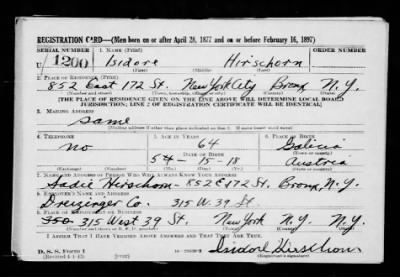 REGISTRATION CARD—(Men born on or after April 28, 1877 and on or before February 16, 1897)
SERIAL NUMBER 1. NAME (Print) ORDER NUMBER
U 1200 Isidore Hirschorn
(First) (Middle) (Last)
2. PLACE OF RESIDENCE (Print)
852 East 172 St. New York City Bronx N.Y.
(Number and street) (Town, township, village, or city) (County) (State)
[THE PLACE OF RESIDENCE GIVEN ON THE LINE ABOVE WILL DETERMINE LOCAL BOARD
JURISDICTION; LINE 2 OF REGISTRATION CERTIFICATE WILL BE IDENTICAL]
3. MAILING ADDRESS
Same
[Mailing address if other than place indicated on line 2. If same insert word same]
4. TELEPHONE 5. AGE IN YEARS 6. PLACE OF BIRTH
no 64 Galicia
DATE OF BIRTH (Town or county)
5th-15-18 Austria
(Mo.) (Day) (Yr.) (State or country)
7. NAME AND ADDRESS OF PERSON WHO WILL ALWAYS KNOW YOUR ADDRESS
Sadie Hirschorn - 852 E 172 St. Bronx, N.Y.
8. EMPLOYER'S NAME AND ADDRESS
Dreizinger Co. 315 W 39 St.
9. PLACE OF EMPLOYMENT OR BUSINESS
350 315 West 39 St. New York N.Y. N.Y.
(Number and street or R. F. D. number) (Town) (County) (State)
I AFFIRM THAT I HAVE VERIFIED ABOVE ANSWERS AND THAT THEY ARE TRUE.
D. S. S. Form 1
(Revised 4-1-42) (over)
Isidore Hirschorn
(Registrant's signature)